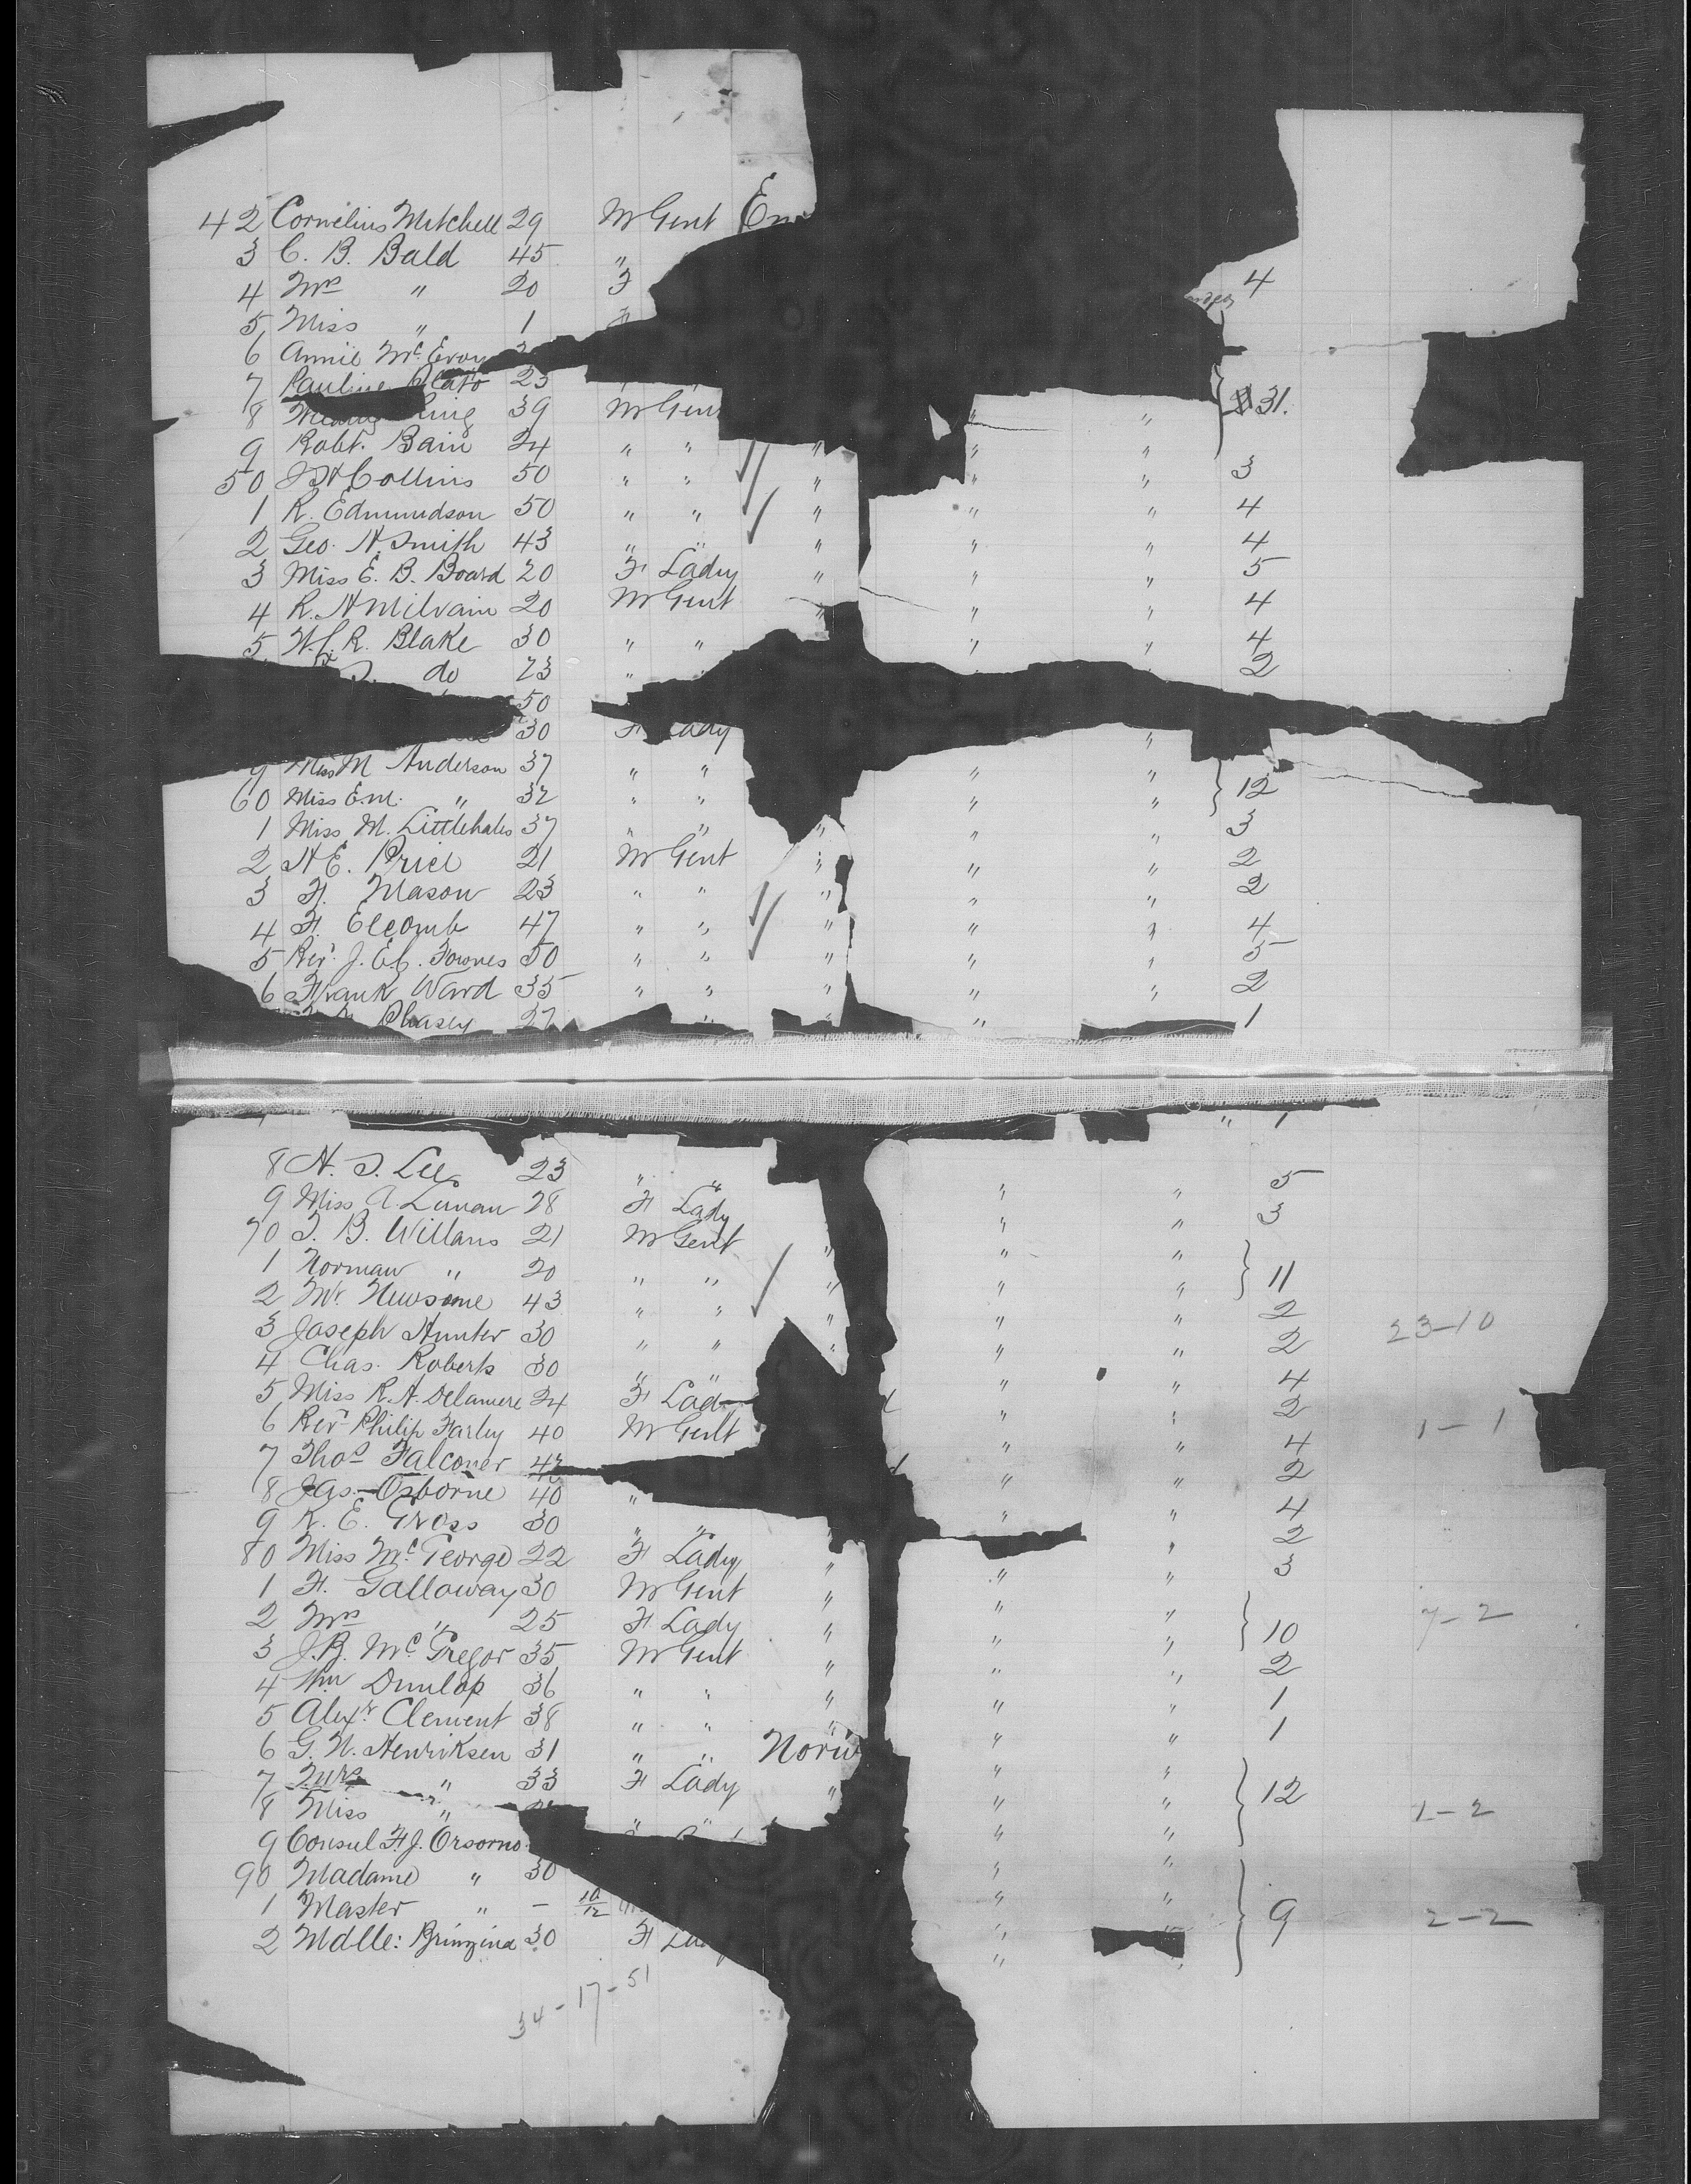 42 Cornelius Mitchell 29 M Gent En
3 C. B. Bald 45 "
4 Mrs " 20 F 4
5 Miss " 1 F
6 Annie McEvoy
7 Pauline 23
8 39 M Gent " " 31.
9 Robt. Bain 24 " " " " "
50 J H Collins 50 " " " " " 3
1 R. Edmundson 50 " " " " " 4
2 Geo. H. Smith 43 " " " " " 4
3 Miss E. B. Board 20 F Lady " " " 5
4 R. H Milvain 20 M Gent " " " 4
5 W. C. R. Blake 30 " " " " 4
do 23 " 2
50
30 F Lady "
9 Miss M Anderson 37 " " " "
60 Miss E.M. " 32 " " " " 12
1 Miss M. Littlehales 37 " " " " " 3
2 H E. Price 21 M Gent " " " 2
3 F. Mason 23 " " " " " 2
4 F. Elcomb 47 " " " " " 4
5 Revd. J. E. C. Fownes 50 " " " " " 5
6 Frank Ward 35 " " " " " 2
Phasey 27 " " " 1
" 1
8 H. S. Lee 23 " " " " 5
9 Miss A. Lunan 28 F Lady " " 3
70 T. B. Willans 21 M Gent " " "
1 Norman " 20 " " " " " 11
2 Mr. Newsome 43 " " " " " 2
3 Joseph Hunter 30 " " " " " 2 23-10
4 Chas. Roberts 30 " " " " 4
5 Miss R. A. Delamere 24 F Lad " " 2
6 Revd Philip Farley 40 M Gent " " 4 1-1
7 Thos Falconer 42 " " 2
8 Jas. Osborne 40 " " " 4
9 R. E. Gross 30 " " " " 2
80 Miss McGeorge 22 F Lady " " " 3
1 F. Galloway 30 M Gent " " "
2 Mrs " 25 F Lady " " " 10 7-2
3 J. B. McGregor 35 M Gent " " " 2
4 Wm Dunlop 36 " " " " " 1
5 Alexr. Clement 38 " " " " " 1
6 G. N. Henriksen 31 " " Norw " "
7 Mrs " 33 F Lady " " " 12
8 Miss " " " " 1-2
9 Consul F. J. Orsorno " "
90 Madame " 30 " "
1 Master " - 10/12 " " 9 2-2
2 Mdlle: 30 F La " "
34-17-51